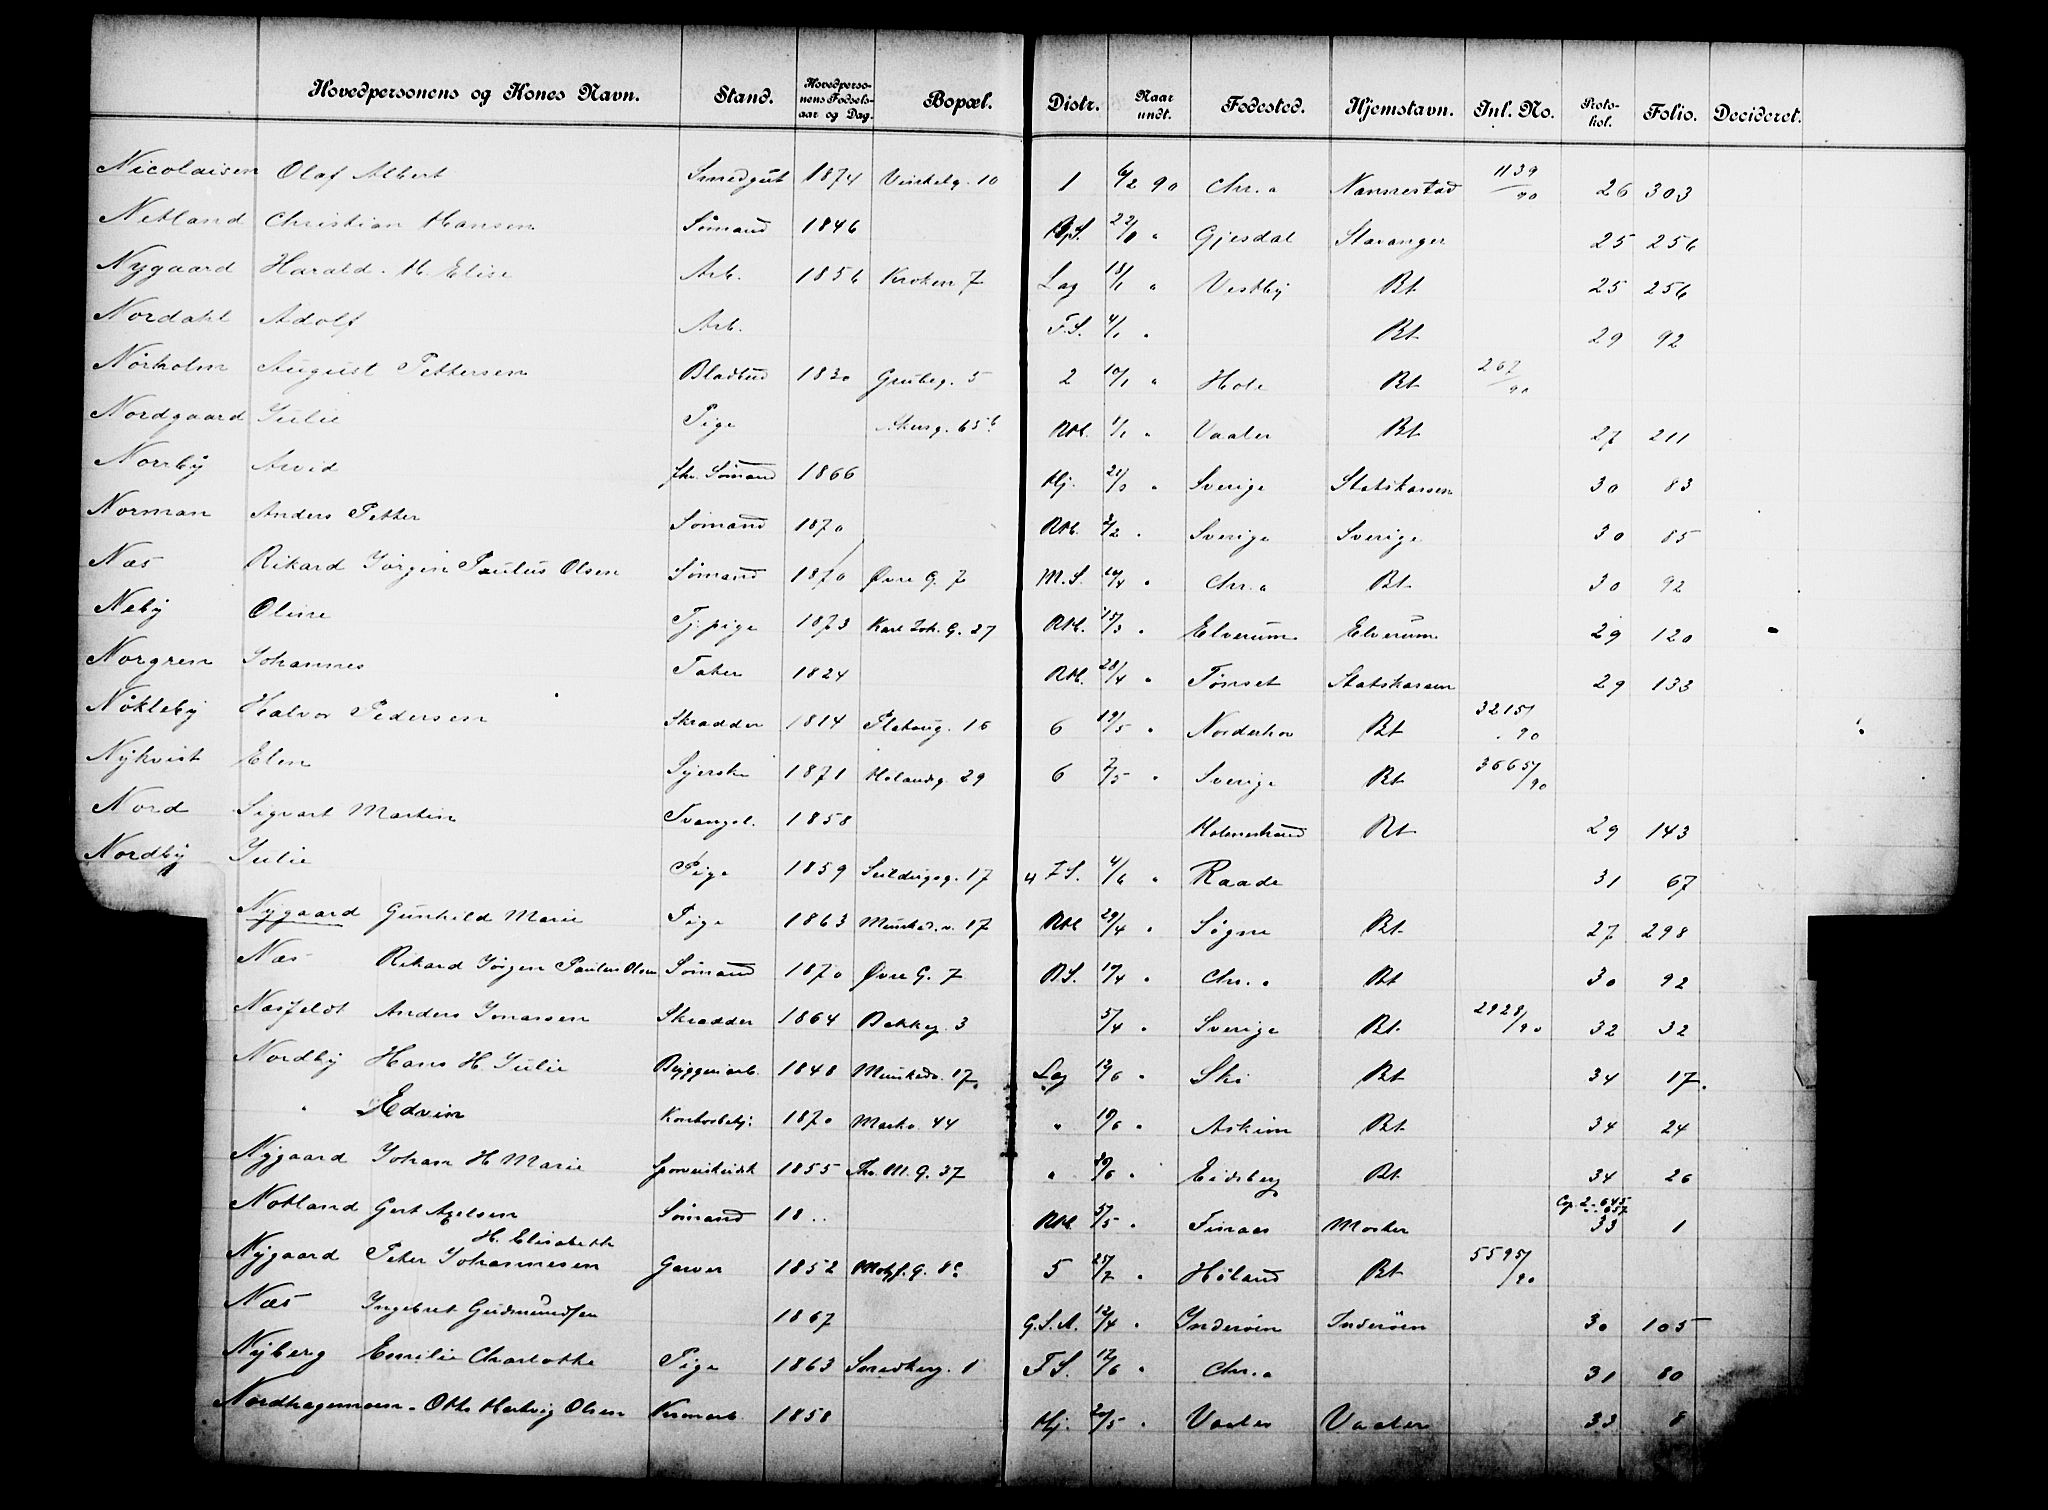 Hovedpersonens og Kones Navn. Stand. Hovedperso-nens Fødsels-aar og Dag. Bopæl. Distr. Naar undt. Fødested. Hjemstavn. Inl. No. Proto-kol. Folio. Decideret.
Nicolaisen Olaf Albert Smedgut 1874 Vinkelg. 10 1 6/2 90 Chr.a Nannestad 1139/90 26 303
Netland Christian Hansen Sømand 1846 22/ " Gjesdal Stavanger 25 256
Nygaard Harald. H. Elise Arb. 1856 Kroken 7 Lag 18/1 " Vestby Bt 25 256
Nordahl Adolf Arb. F.S. 4/1 " Bt 29 92
Nørholm August Pettersen Bladbud 1830 Grubeg. 5 2 10/1 " Hole Bt 267/90
Nordgaard Julie Pige Akersg. 65 b Rtl. 1/1 " Vaaler Bt 27 211
Norrby Arvid Sømand 1866 Hj. 21/3 " Sverige Statskassen 30 83
Norman Anders Petter Sømand 1870 Rtl. 3/2 " Sverige Sverige 30 85
Næs Rikard Jørgen Paulus Olsen Sømand 1870 Øvre G. 7 M.S. 10/4 " Chr.a Bt 30 92
Neby Oline Tj. pige 1873 Karl Joh. G. 27 Rtl. 15/3 " Elverum Elverum 29 120
Norgren Johannes Tater 1824 Rtl. 28/4 " Tønset Statskassen 29 133
Nökleby Halvor Pedersen Skrædder 1814 Platoug. 16 6 19/5 " Norderhov Bt 3215/90
Nykvist Elen Syerske 1871 Hølandsg. 29 6 2/5 " Sverige Bt 3665/90
Nord Sigvart Martin Tvangsl. 1858 Holmestrand Bt 29 143
Nordby Julie Pige 1859 17 4 F.S. 4/6 " Raade 31 67
Nygaard Gunhild Marie Pige 1863 Munked.v. 17 Rtl 29/4 " Søgne Bt 27 298
Næs Rikard Jørgen Paulus Olsen Sømand 1870 Øvre G. 7 B.S. 10/4 " Chr.a Bt 30 92
Næsfeldt Anders Jonassen Skrædder 1864 Bakkeg. 3 5/4 " Sverige Bt 2928/90 32 32
Nordby Hans H. Julie Byggeriarb. 1848 Munkedv. 17 Lag 12/6 " Ski Bt 34 17
" Edvin Kontorbetj. 1870 Markv. 44 " 19/6 " Askim Bt 34 24
Nygaard Johan H. Marie Sporveiskudsk 1855 Th. M. G. 37 " 20/6 " Eidsberg Bt 34 26
Notland Gert Axelsen Sømand 18.. Rtl 5/5 " Finaas Moster Cop. 2 - 645 - 657 33 1
H. Elisabeth
Nygaard Peter Johannesen Garver 1852 Motzf. G. 8 c 5 25/7 " Høland Bt 5595/90
Næs Ingebret Gudmundsen 1867 G.S.A. 12/4 " Inderøen Inderøen 30 105
Nyberg Emilie Charlotte Pige 1863 Smedberg. 1 F.S. 12/6 " Chr.a 31 80
Nordhagenmoen. Otto Hartvig Olsen 1858 Hj. 20/5 " Vaaler Vaaler 33 8